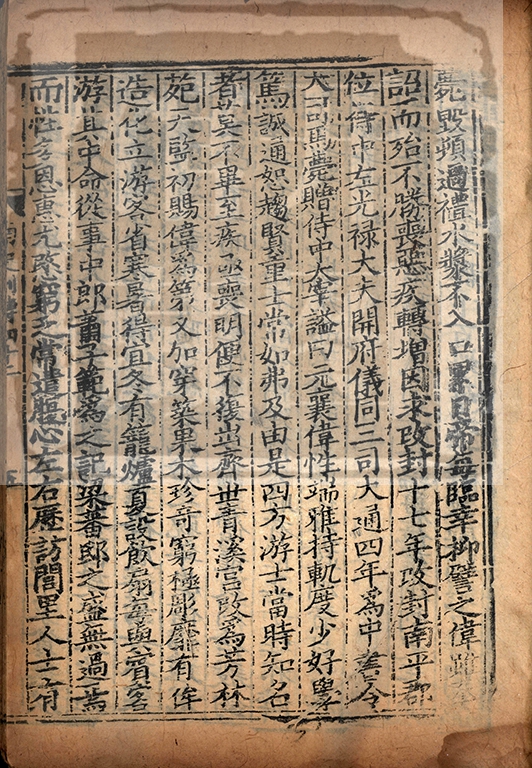 薨毀頓過禮水漿不入口累日帝每臨幸抑譬之偉雖奉
詔而殆不勝喪惡疾轉增因求改封十七年改封南平郡
位侍中左光禄大夫開府儀同三司大通四年爲中書令
大司馬薨贈侍中太宰謚曰元襄偉性端雅持軌度少好學
篤誠通恕趨賢重士常如弗及由是四方游士當時知名
者莫不畢至疾亟喪明便不復出齊世青溪宮改爲芳林
苑天監初賜偉爲第又加穿築果木珍奇窮極彫靡有侔
造化立游客省寒暑得宜冬有籠爐夏設飲扇每與賓客
游其中命從事中郎蕭子範爲之記梁蕃邸之盛無過焉
而性多恩惠尤愍窮乏常遣腹心左右歷訪閭里人士有